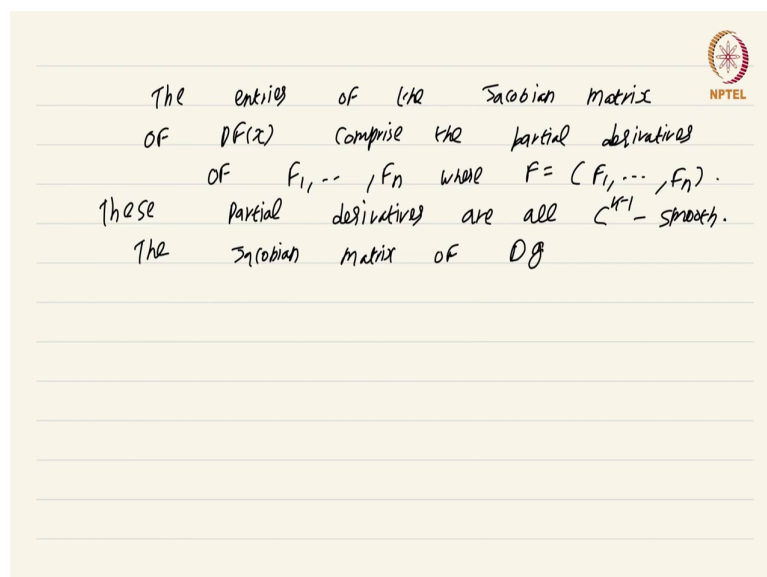 NPTEL
The entries of the Jacobian matrix
of DF(x) comprise the partial derivatives
of F₁, ‑‑ , Fₙ where F = (F₁, ⋯ , Fₙ).
These partial derivatives are all Cᵏ⁻¹ - smooth.
The Jacobian matrix of Dg